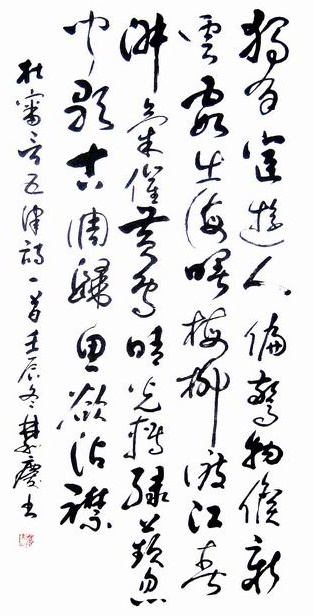 獨有宦遊人偏驚物候新
雲霞出海曙梅柳渡江春
淑氣催黃鳥晴光轉綠蘋忽
聞歌古調歸思欲沾襟
杜審言五律詩一首壬辰冬慶书